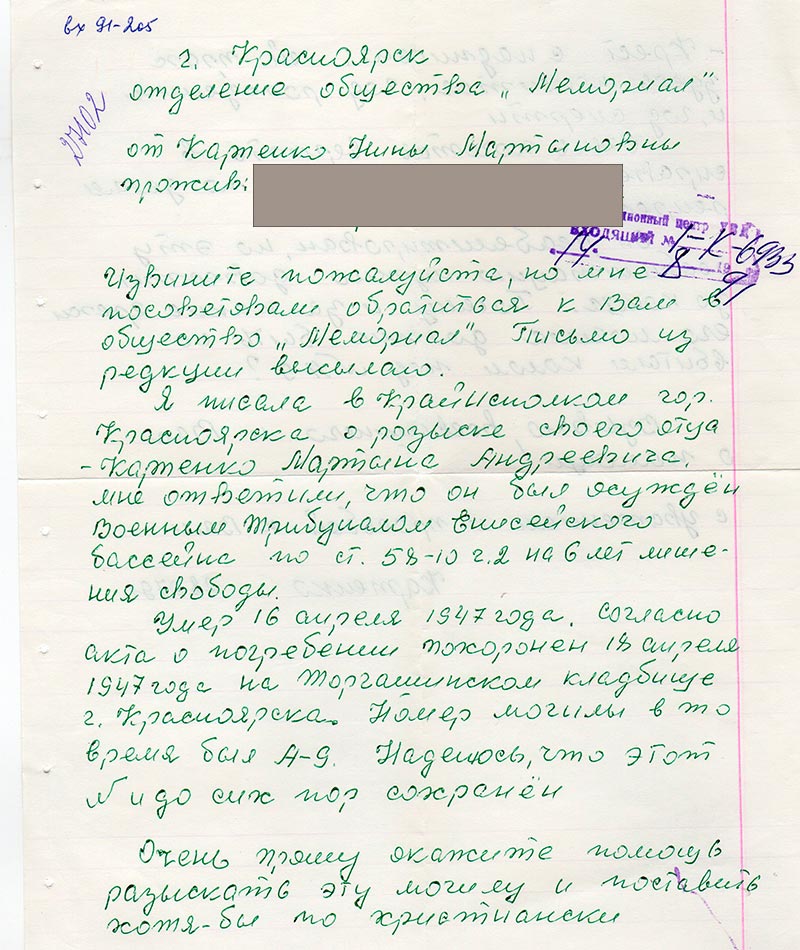 вх 91-205
27102
г. Красноярск
отделение общества „Мемориал"
от Картенко Нины Мартыновны
прожив:
ционный центр УВД
ВХОДЯЩИЙ № 1-К-6933
14. 8 1991
Извините пожалуйста, но мне
посоветовали обратиться к Вам в
общество „Мемориал" Письмо из
редкции высылаю.
Я писала в Крайисполком гор.
Красноярска о розыске своего отца
- Картенко Мартына Андреевича.
мне ответили, что он был осуждён
Военным Трибуналом Енисейского
бассейна по ст. 58-10 г.2 на 6 лет лише-
ния свободы.
Умер 16 апреля 1947 года. согласно
акта о погребении похоронен 18 апреля
1947 года на Торгашинском кладбище
г. Красноярска. Номер могилы в то
время был А-9. Надеюсь, что этот
№ и до сих пор сохранён
Очень прошу окажите помощь
разыскать эту могилу и поставить
хотя-бы по христиански